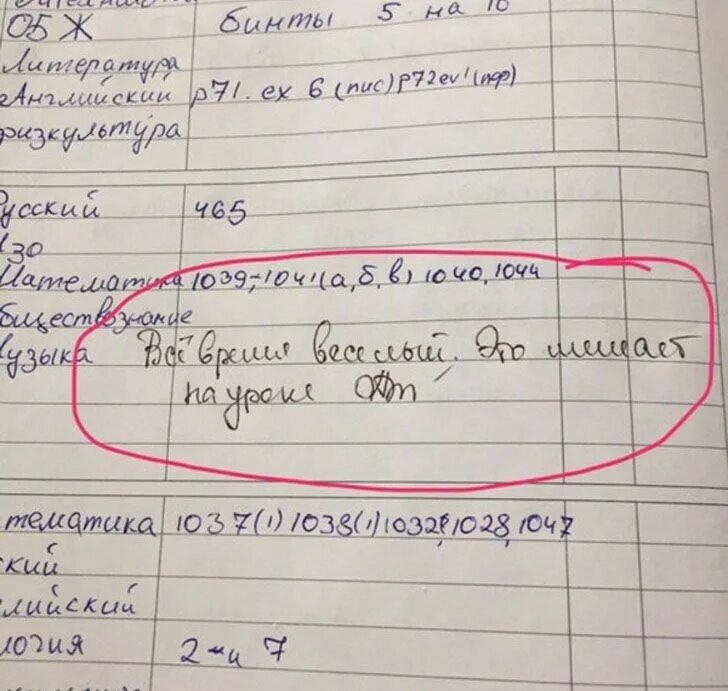 ОБЖ бинты 5 на 10
Литература
Английский p71. ex 6 (пис) p72 ex1 (пер)
физкультура
Русский 465
ИЗО
Математика 1039, 1041 (а, б, в) 1040, 1044
обществознание
Музыка Всё время веселый. Это мешает
на уроке
тематика 1037(1) 1038(1) 1032, 1028, 1047
ский
лийский
логия 2 и 7